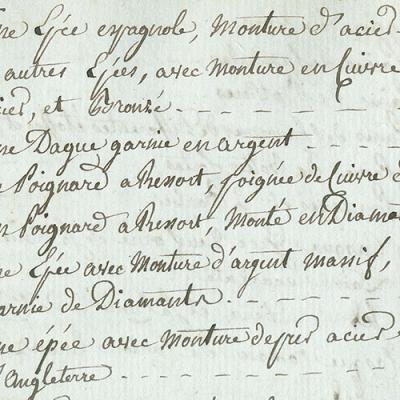 ne Epée espagnole, Monture d'acier
autres Epées, avec Monture en Cuivre
cier, et Bronzé
ne Dague garnie en argent
Poignard a Ressort, poignée de Cuivre
n Poignard a Ressort, Monté en Diama
ne Epée avec Monture d'argent massif,
arnie de Diamants
ne épée avec Monture de fer acier
d'Angleterre